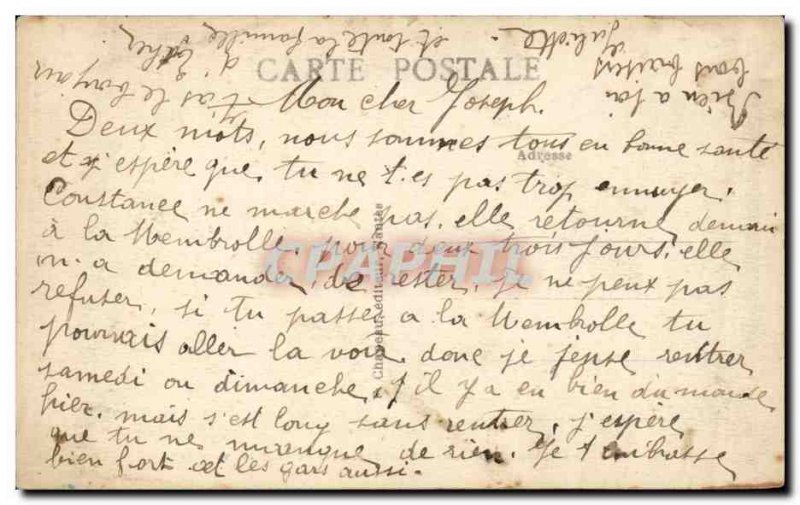 CARTE POSTALE
Adresse
Mon cher Joseph.
Deux mots, nous sommes tous en bonne santé
et j'espère que tu ne t.es pas trop ennuyer.
Constance ne marche pas. elle retourne demain
à la Membrolle. pour deux trois jours. elle
m'a demander de rester, je ne peux pas
refuser, si tu passes a la Membrolle tu
pourrais aller la voir, donc je pense rentrer
samedi ou dimanche, il y a eu bien du monde
hier. mais s'est long sans rentrer, j'espère
que tu ne manque de rien. Je t'embrasse
bien fort et les gars aussi.
t'as le bonjour
d'Esther
et toute la famille.
Bien a toi
bons baisers
Juliette
Chapeau, éditeur, Nantes
CPAPHIL